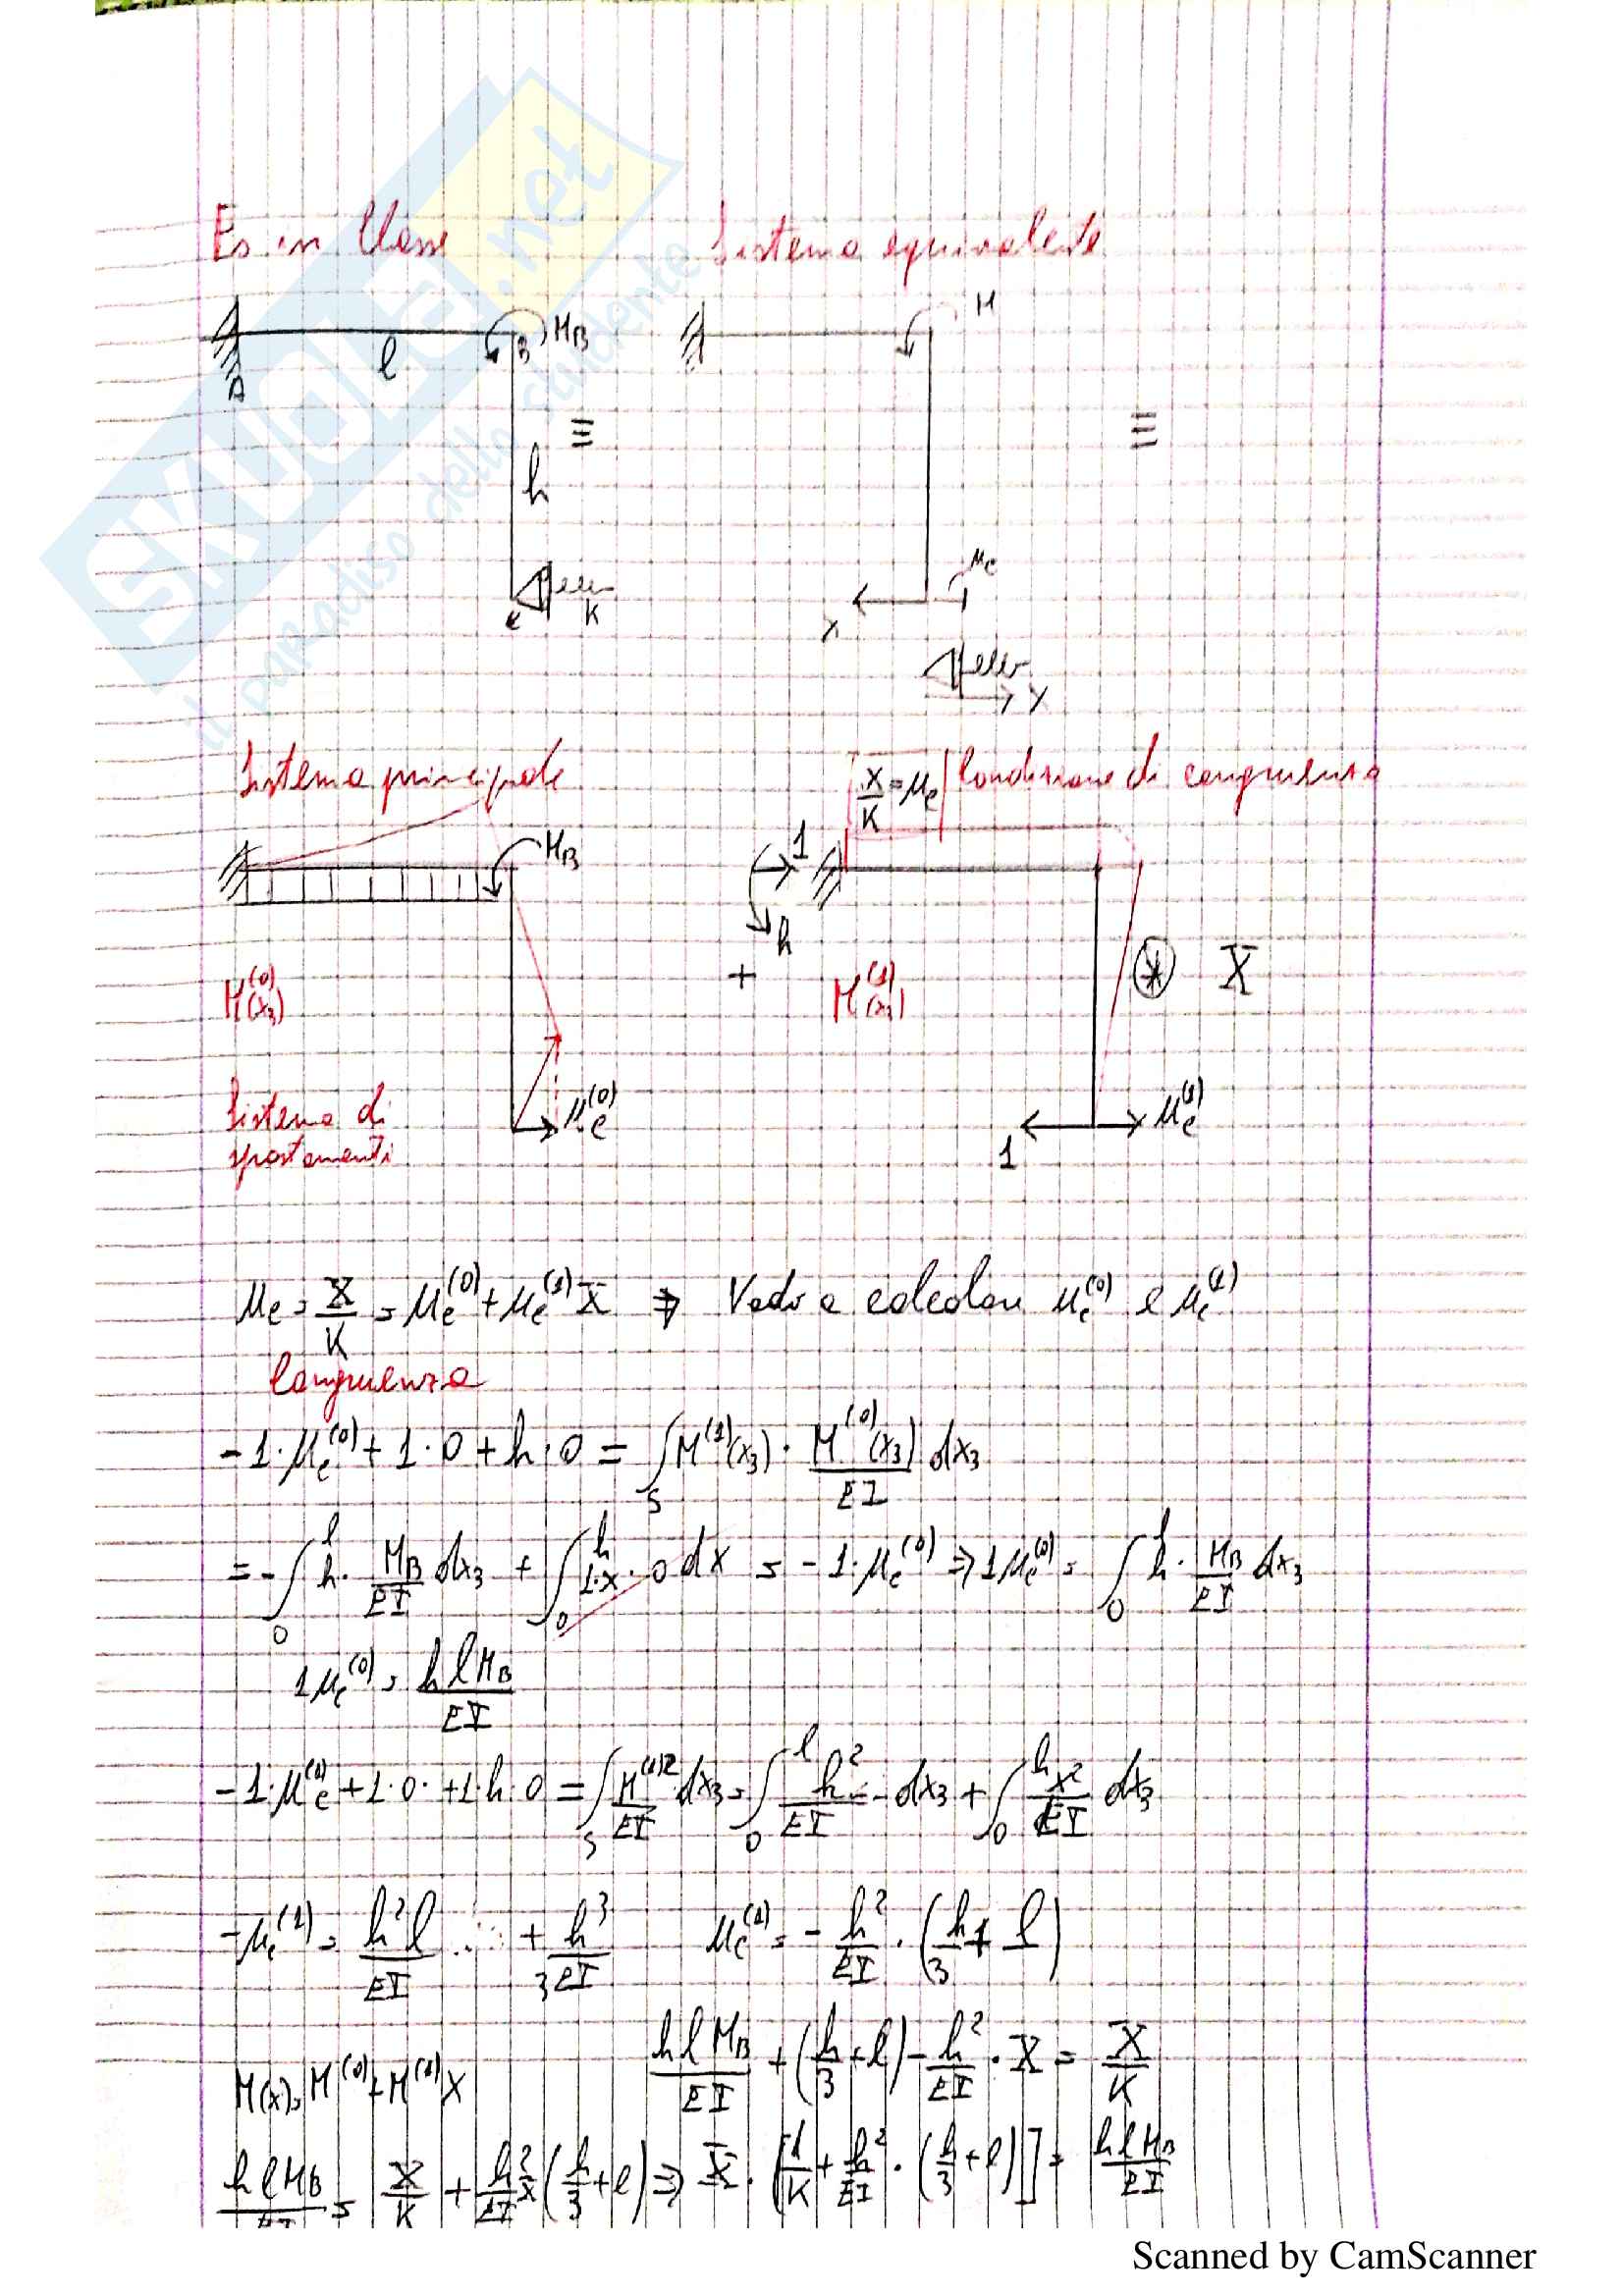 Es in Classe Sistema equivalente
A l B M_B M
≡ ≡
h
c K X u_c
X
Sistema principale X/K = u_c Condizione di congruenza
M_B 1
h
M^(0)(x_3) + M^(1)(x_3) * X
Sistema di u_c^(0) u_c^(1)
spostamenti 1
u_c = X/K = u_c^(0) + u_c^(1) X ⇒ Vado a calcolare u_c^(0) e u_c^(1)
Congruenza
-1·u_c^(0) + 1·0 + h·0 = ∫_S M^(1)(x_3) · M^(0)(x_3)/EI dx_3
= -∫_0^l h · M_B/EI dx_3 + ∫_0^h 1·x · 0 dx = -1·u_c^(0) ⇒ 1 u_c^(0) = ∫_0^l h · M_B/EI dx_3
1 u_c^(0) = h l M_B/EI
-1·u_c^(1) + 1·0· + 1·h·0 = ∫_S M^(1)2/EI dx_3 = ∫_0^l h^2/EI dx_3 + ∫_0^h x^2/EI dx_3
-u_c^(1) = h^2 l/EI + h^3/3EI u_c^(1) = - h^2/EI · (h/3 + l)
M(x) = M^(0) + M^(1) X h l M_B/EI + (h/3 + l) - h^2/EI · X = X/K
h l M_B/EI = X/K + h^2/EI X (h/3 + l) ⇒ X · [1/K + h^2/EI · (h/3 + l)] = h l M_B/EI
SKUOLA.net
il paradiso dello studente
Scanned by CamScanner